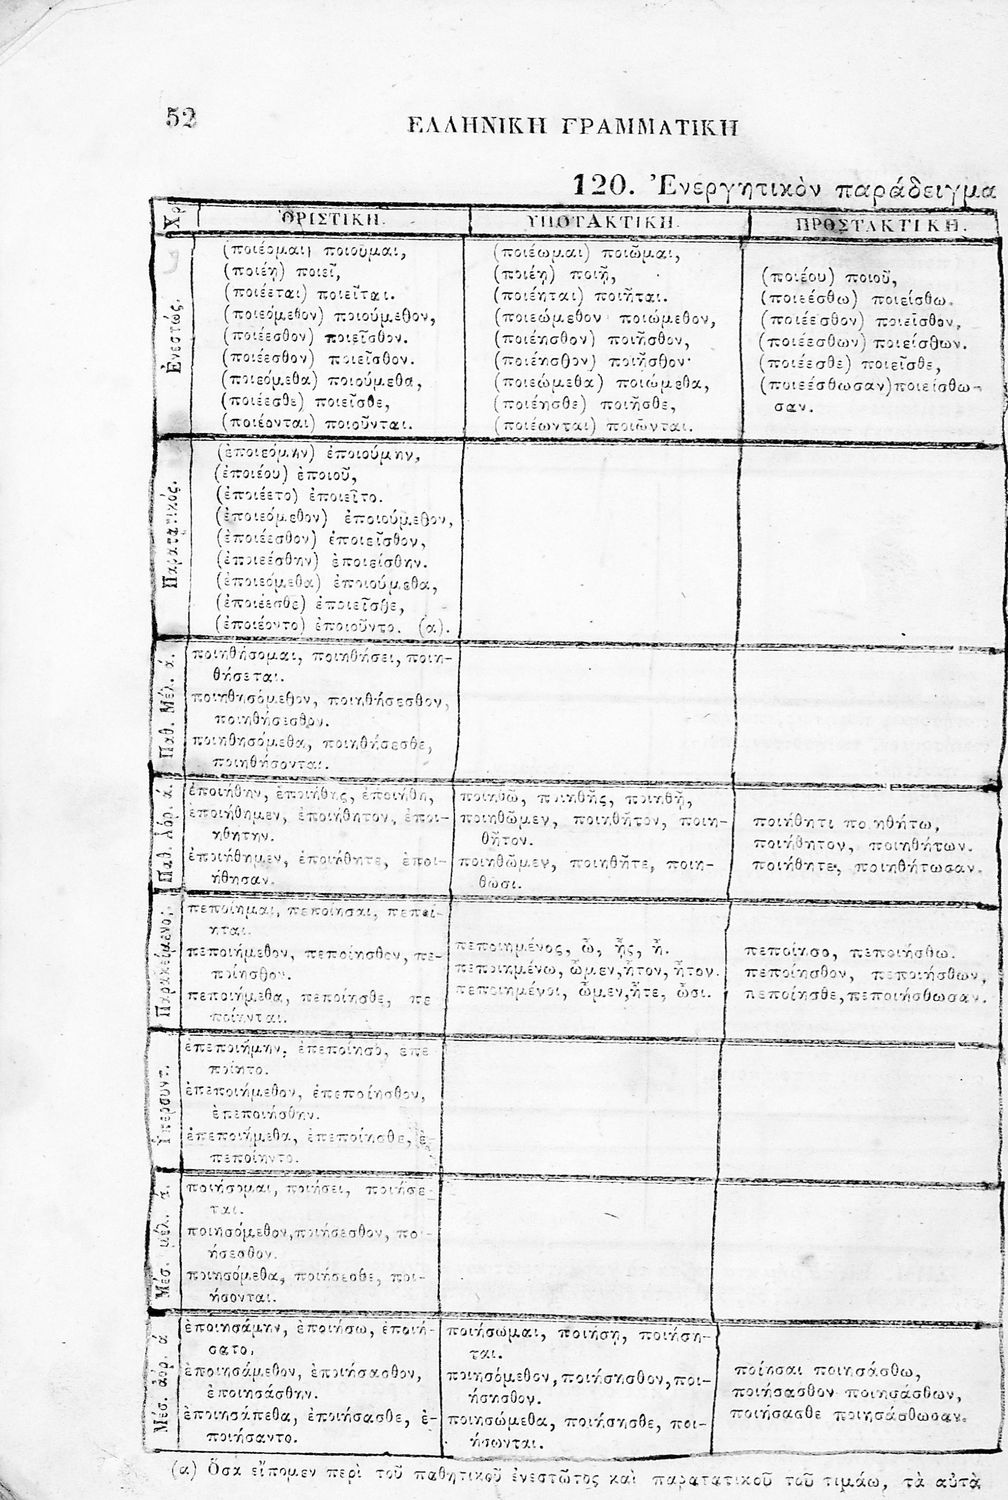 52
ΕΛΛΗΝΙΚΗ ΓΡΑΜΜΑΤΙΚΗ
120. Ἐνεργητικὸν παράδειγμα
Χρ.
ὉΡΙΣΤΙΚΗ.
ΥΠΟΤΑΚΤΙΚΗ.
ΠΡΟΣΤΑΚΤΙΚΗ.
Ἐνεστώς.
(ποιέομαι) ποιοῦμαι,
(ποιέῃ) ποιεῖ,
(ποιέεται) ποιεῖται.
(ποιεόμεθον) ποιούμεθον,
(ποιέεσθον) ποιεῖσθον.
(ποιέεσθον) ποιεῖσθον.
(ποιεόμεθα) ποιούμεθα,
(ποιέεσθε) ποιεῖσθε,
(ποιέονται) ποιοῦνται.
(ποιέωμαι) ποιῶμαι,
(ποιέῃ) ποιῇ,
(ποιέηται) ποιῆται.
(ποιεώμεθον ποιώμεθον,
(ποιέησθον) ποιῆσθον,
(ποιέησθον) ποιῆσθον·
(ποιεώμεθα) ποιώμεθα,
(ποιέησθε) ποιῆσθε,
(ποιέωνται) ποιῶνται.
(ποιέου) ποιοῦ,
(ποιεέσθω) ποιείσθω.
(ποιέεσθον) ποιεῖσθον,
(ποιεέσθων) ποιείσθων.
(ποιέεσθε) ποιεῖσθε,
(ποιεέσθωσαν)ποιείσθω-
σαν.
Παρατατικός.
(ἐποιεόμην) ἐποιούμην,
(ἐποιέου) ἐποιοῦ,
(ἐποιέετο) ἐποιεῖτο.
(ἐποιεόμεθον) ἐποιούμεθον,
(ἐποιέεσθον) ἐποιεῖσθον,
(ἐποιεέσθην) ἐποιείσθην.
(ἐποιεόμεθα) ἐποιούμεθα,
(ἐποιέεσθε) ἐποιεῖσθε,
(ἐποιέοντο) ἐποιοῦντο. (α).
Παθ. Μέλ. ά.
ποιηθήσομαι, ποιηθήσει, ποιη-
θήσεται.
ποιηθησόμεθον, ποιηθήσεσθον,
ποιηθήσεσθον.
ποιηθησόμεθα, ποιηθήσεσθε,
ποιηθήσονται.
Παθ. Ἀόρ. ά.
ἐποιήθην, ἐποιήθης, ἐποιήθη,
ἐποιήθημεν, ἐποιήθητον, ἐποι-
ηθητην.
ἐποιήθημεν, ἐποιήθητε, ἐποι-
ήθησαν.
ποιηθῶ, ποιηθῇς, ποιηθῇ,
ποιηθῶμεν, ποιηθῆτον, ποιη-
θῆτον.
ποιηθῶμεν, ποιηθῆτε, ποιη-
θῶσι.
ποιήθητι ποιηθήτω,
ποιήθητον, ποιηθήτων.
ποιήθητε, ποιηθήτωσαν.
Παρακείμενος.
πεποίημαι, πεποίησαι, πεποί-
ηται.
πεποιήμεθον, πεποίησθον, πε-
ποίησθον.
πεποιήμεθα, πεποίησθε, πε
ποίηνται.
πεποιημένος, ὦ, ᾖς, ᾖ.
πεποιημένω, ὦμεν,ἦτον,ἦτον.
πεποιημένοι, ὦμεν,ἦτε, ὦσι.
πεποίησο, πεποιήσθω.
πεποίησθον, πεποιήσθων,
πεποίησθε,πεποιήσθωσαν.
Ὑπερσυντ.
ἐπεποιήμην, ἐπεποίησο, ἐπε
ποίητο.
ἐπεποιήμεθον, ἐπεποίησθον,
ἐπεποιήσθην.
ἐπεποιήμεθα, ἐπεποίησθε, ἐ-
πεποίηντο.
Μέσ. μέλ. ά.
ποιήσομαι, ποιήσει, ποιήσε-
ται.
ποιησόμεθον,ποιήσεσθον, πο
ήσεσθον.
ποιησόμεθα, ποιήσεσθε, ποι-
ήσονται.
Μέσ. ἀόρ. ά
ἐποιησάμην, ἐποιήσω, ἐποιή-
σατο,
ἐποιησάμεθον, ἐποιήσασθον,
ἐποιησάσθην.
ἐποιησάπεθα, ἐποιήσασθε, ἐ-
ποιήσαντο.
ποιήσωμαι, ποιήσῃ, ποιήση-
ται.
ποιησόμεθον,ποιήσησθον,ποι-
ήσησθον.
ποιησώμεθα, ποιήσησθε, ποι-
ήσωνται.
ποίησαι ποιησάσθω,
ποιήσασθον ποιησάσθων,
ποιήσασθε ποιησάσθωσαν.
(α) Ὅσα εἴπομεν περὶ τοῦ παθητικοῦ ἐνεστῶτος καὶ παρατατικοῦ τοῦ τιμάω, τὰ αὐτὰ